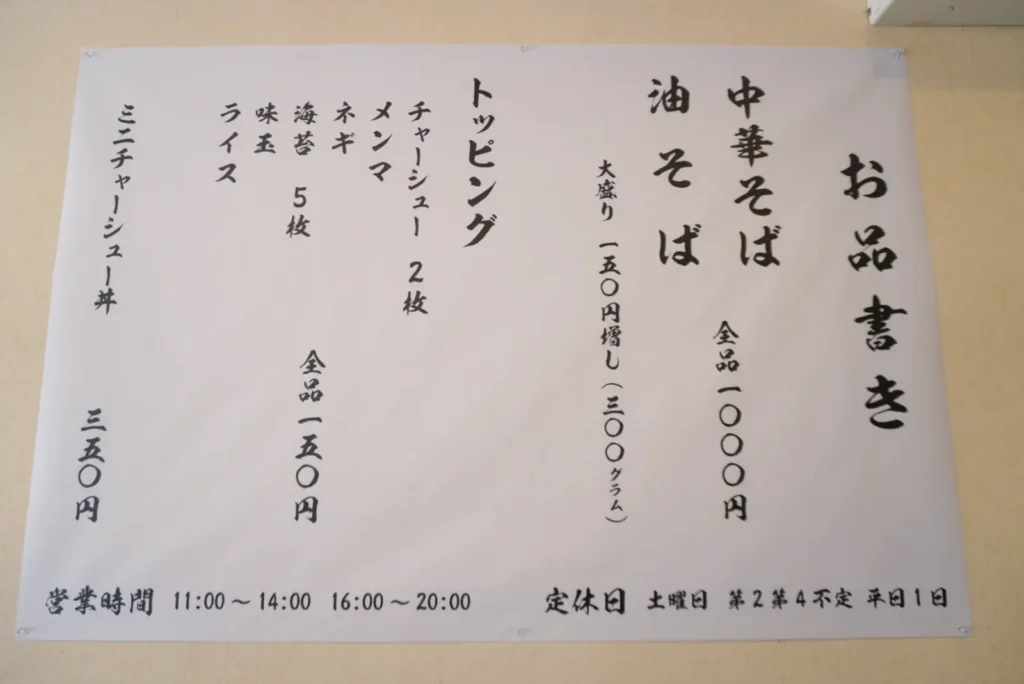 お品書き
中華そば
全品一〇〇〇円
油そば
大盛り 一五〇円増し(三〇〇グラム)
トッピング
チャーシュー 2枚
メンマ
ネギ
海苔 5枚
味玉
ライス
全品一五〇円
ミニチャーシュー丼 三五〇円
営業時間 11:00～14:00 16:00～20:00
定休日 土曜日 第2第4不定 平日1日